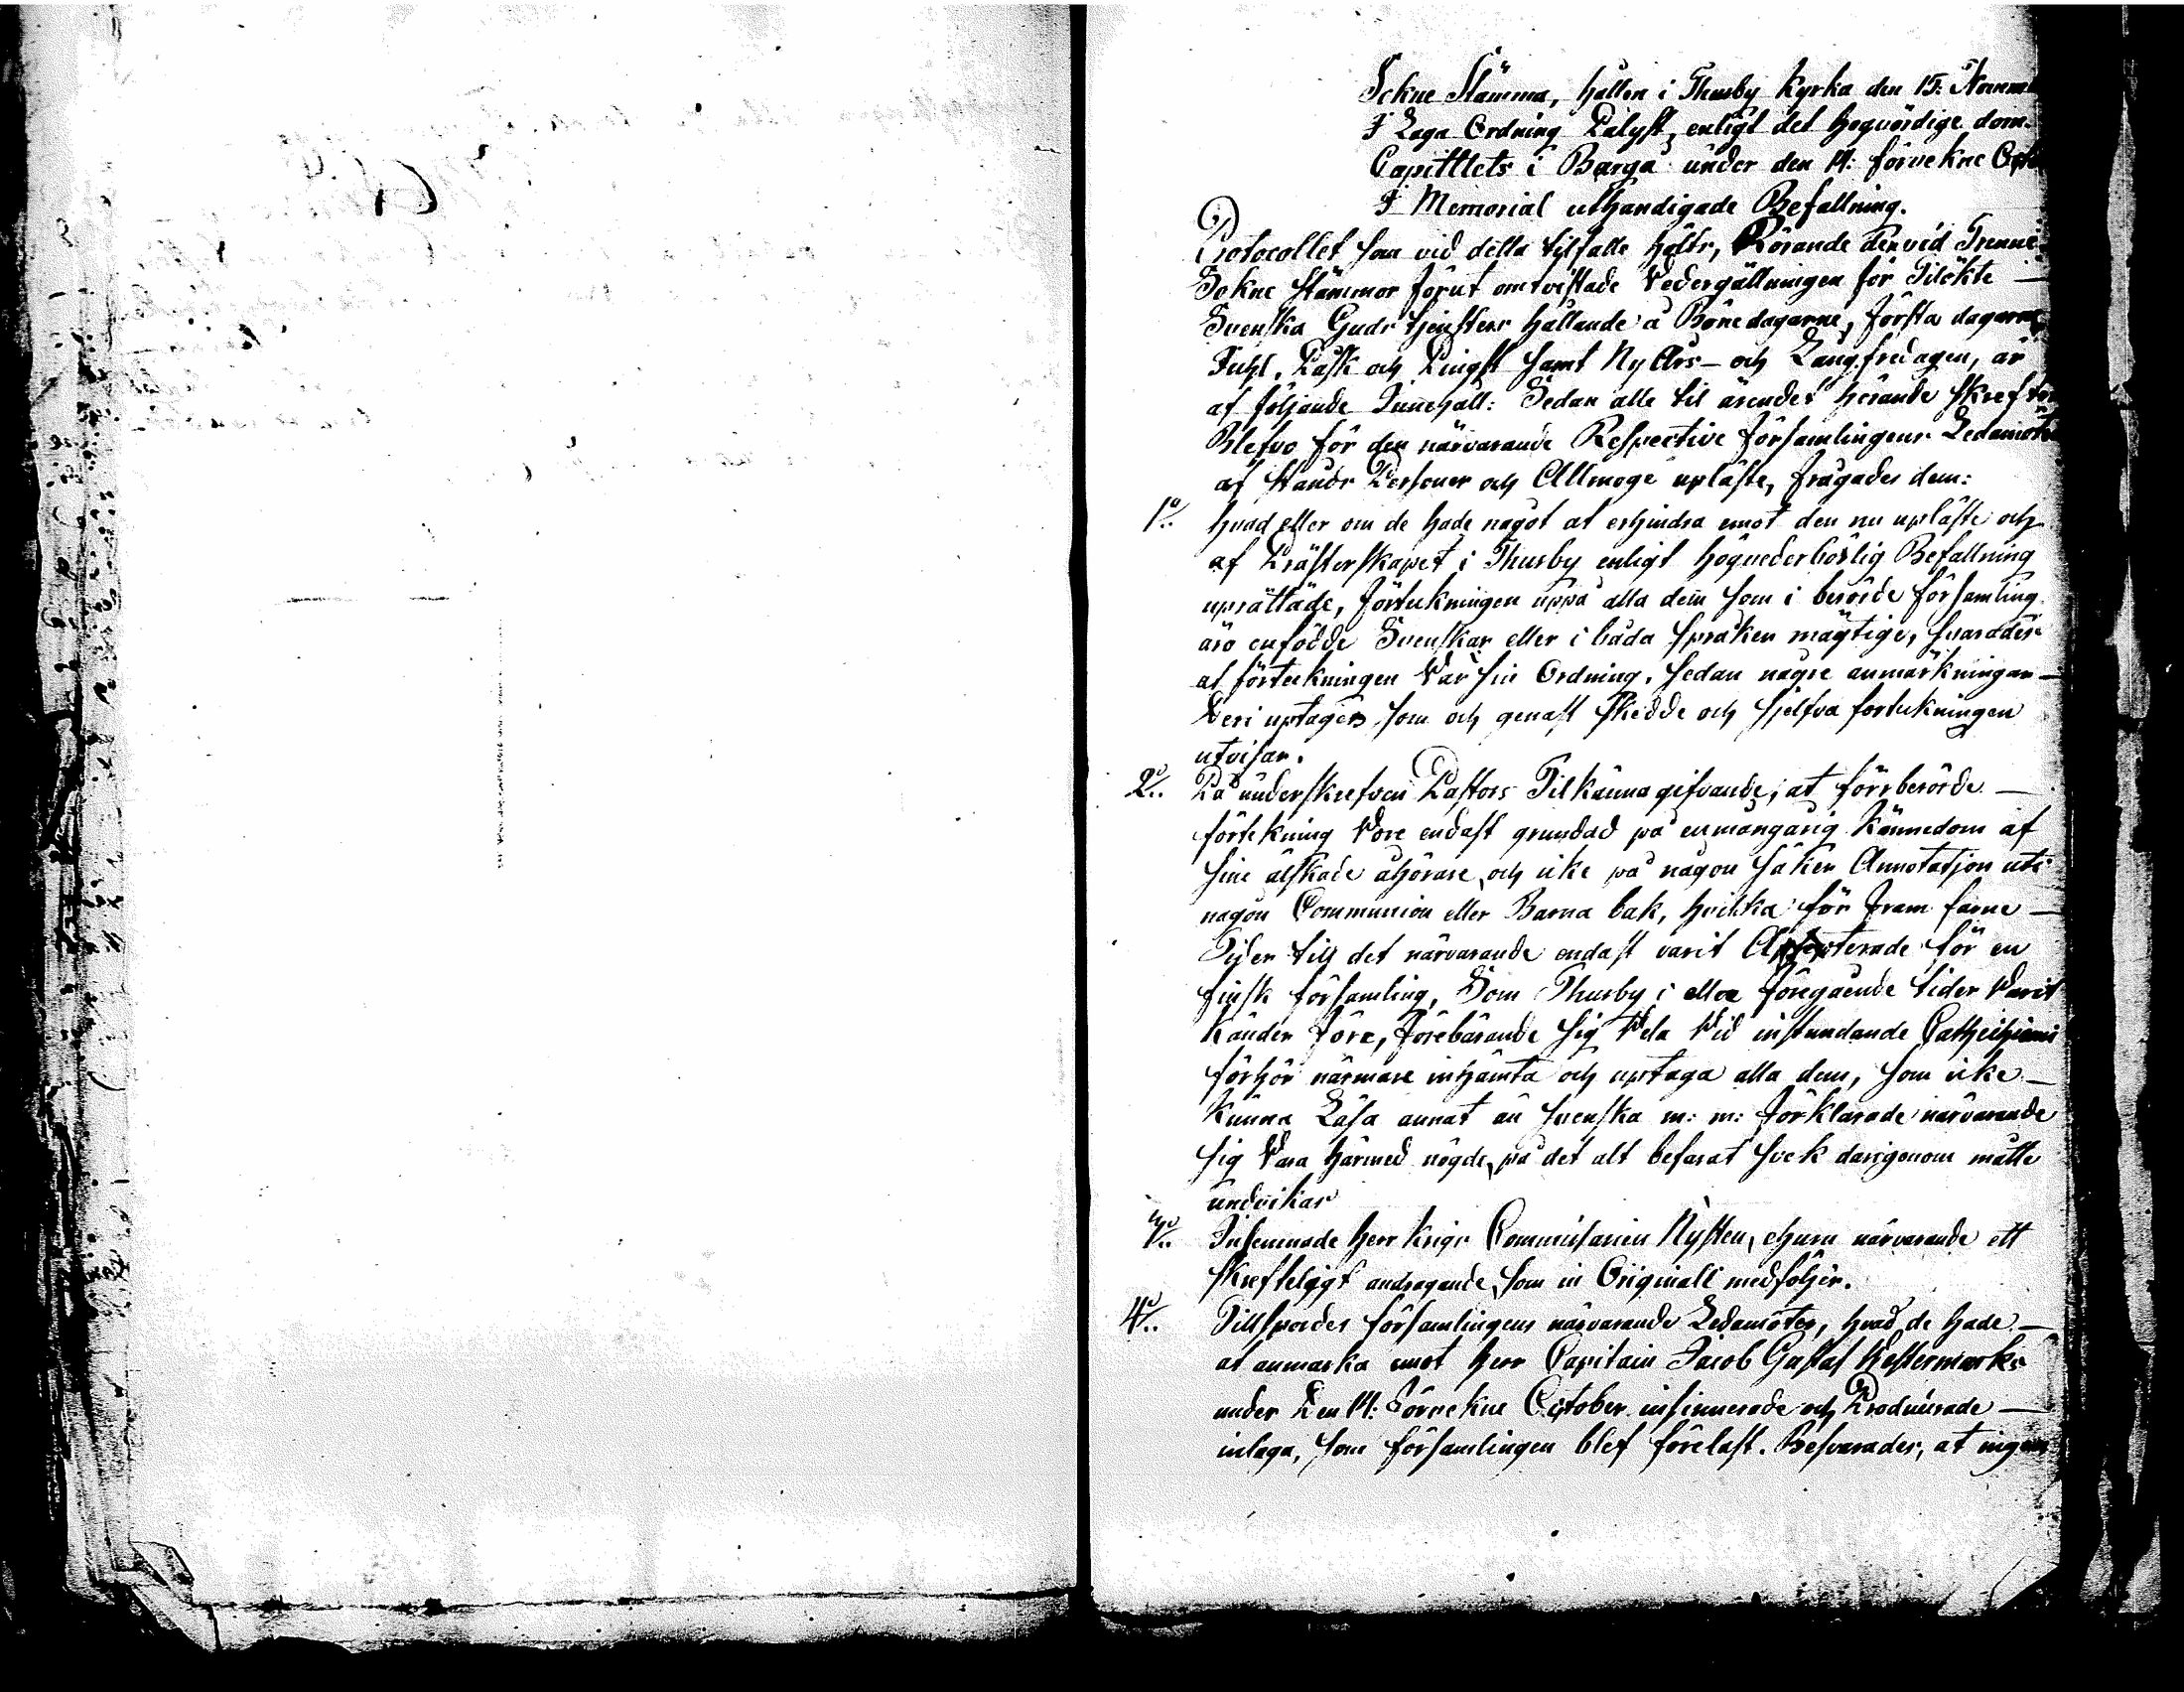 Sokne Stämma, hållen i Thusby Kyrka den 15:
I Laga Ordning Pålyst, enligt det högvördige dom-
Capittlets i Borgå under den 14: förvekne
I Memorial uthandigade Befallning.
Protocollet som vid detta tilfälle hölts, Rörande den vid Trenne
Sokne Stämmor förut omtvistade Vedergällningen för Tilökte
Svenska Gudstjensters hållande å Bönedagarne, första dagarne
Juhl, Påsk och Pingst samt NyArs- och Långfredagen, är
af följande Innehåll: Sedan alle til ärendet hörande Skrefter
Blefvo för den närvarande Respective församlingens Ledamöter
af Stånds Personer och Allmoge upläste, frågades dem:
1o/.. hvad eller om de hade något at erhindra emot den nu upläste och
af Prästerskapet i Thusby enligt högvederbörlig Befallning
uprättade, förteckningen uppå alla dem som i berörde församling
äro enfödde Svenskar eller i båda språken mägtige, svarades:
at förteckningen Var sin Ordning, sedan någre anmärkningar
deri uptagits som och genast skedde och sjelfva forteckningen
utvisar.
2o/.. På underskrefven Pastors Tilkännagifvande; at förrberörde
förtekning Vore endast grundad på en mångårig Kännedom af
sine älskade åhörare, och icke på någon säker Annotatjon uti
någon Communion eller Barna bok, hvilka för fram farne
Tider till det närvarande endast varit för en
finsk församling, Som Thusby i alla föregående tider Varit
känder före, förebärande sig Vela Vid instundande Cathechismi
förhör närmare inhämta och uptaga alla dem, som icke
kunna Läsa annat än svenska m: m: förklarade närvarande
sig Vara härmed nögde, på det alt befarat svek darigenom måtte
undvikas
3o/.. Inlemnade herr Krigs Commissarien Nysten, ehuru närvarande ett
skrefteligt andragande, som in Originali medföljer.
4o/.. Tillspordes församlingens närvarande Ledamöter, hvad de hade
at anmärka emot herr Capitain Jacob Gustaf Westermarks
under den 14: Förvekne October insinuerade och Producerade
inlaga, som församlingen blef föreläst. Besvarades, at